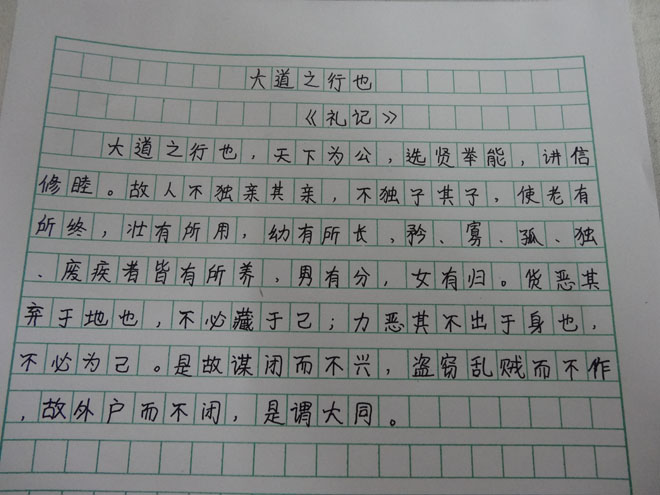 大道之行也
《礼记》
大道之行也，天下为公，选贤举能，讲信
修睦。故人不独亲其亲，不独子其子，使老有
所终，壮有所用，幼有所长，矜、寡、孤、独
、废疾者皆有所养，男有分，女有归。货恶其
弃于地也，不必藏于己；力恶其不出于身也，
不必为己。是故谋闭而不兴，盗窃乱贼而不作
，故外户而不闭，是谓大同。